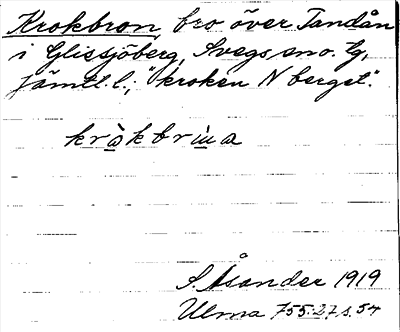 Krokbron, bro över Tandån
i Glissjöberg, Svegs sn o. lg,
Jämtl. l., "kroken N berget".
kròkbrùna
S. Åsander 1919
Ulma 755:27 s. 54